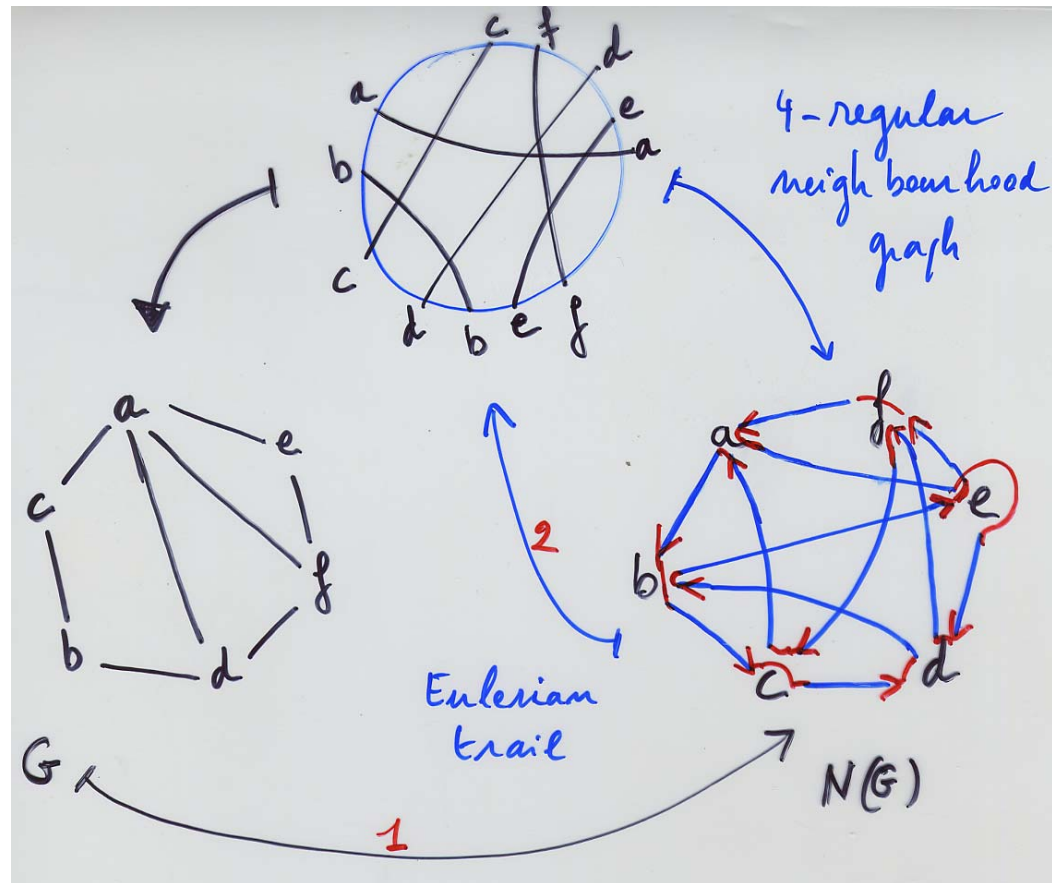 c f d
a e
a
b
c
d b e f
4-regular
neighbourhood
graph
a
e
c
f
b
d
f
a
e
b
d
c
2
Eulerian
trail
G
N(G)
1